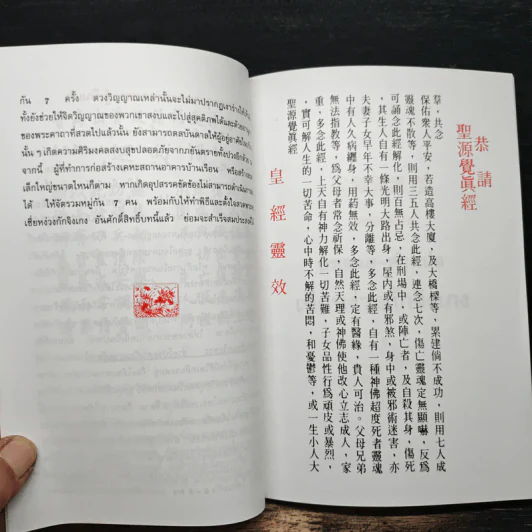 กัน 7 ครั้ง ดวงวิญญาณเหล่านั้นจะไม่มาปรากฏเงาร่างให้เห็น
ทั้งยังช่วยให้จิตวิญญาณของพวกเขาสงบและไปสู่สุคติภพได้และด้วยอานุ
ของพระคาถาที่สวดไปแล้วนั้น ยังสามารถดลบันดาลให้ผู้อยู่อาศัยใน
นั้น ๆ เกิดความศิริมงคลสงบสุขปลอดภัยจากภยันตรายทั้งปวงอีกด้วย
จากนี้ ผู้ที่ทำการก่อสร้างเคหะสถานอาคารบ้านเรือน หรือสร้าง
เล็กใหญ่ขนาดไหนก็ตาม หากเกิดอุปสรรคขัดข้องไม่สามารถดำเนิน
ได้ ให้จัดรวมหมู่กัน 7 คน พร้อมกับให้ทำพิธีและตั้งใจสวด
เฮี่ยหง่วงกักจิงเกง อันศักดิ์สิทธิ์บทนี้แล้ว ย่อมจะสำเร็จสมประสงค์
皇經靈效
聖源覺眞經
實可解人生的一切苦命，心中時不解的苦悶，和憂鬱等，或一生小人大
重，多念此經，上天自有神力解化一切苦難，子女品性行爲頑皮或暴烈，
無法指教等，爲父母者常念祈保，自然天理或神佛使他改心立志成人，家
中有人久病纏身，用葯無效，多念此經，定有醫緣，貴人可治。父母兄弟
夫妻子女早年不幸大事，分離等，多念此經，自有一種神佛超度死者靈魂
，其生人自有一條光明大路出身，屋内或有邪煞，身中或被邪術迷害，亦
可誦念此經解化，則百無占忌，在刑場中，或陣亡者，及自殺其身，傷死
靈魂不散等，則用三五人共念此經，連念七次，傷亡靈魂定無顯嚇，反爲
保佑衆人平安，若造高樓大廈，及大橋樑等，累建倘不成功，則用七人成
羣，共念
恭請
聖源覺眞經